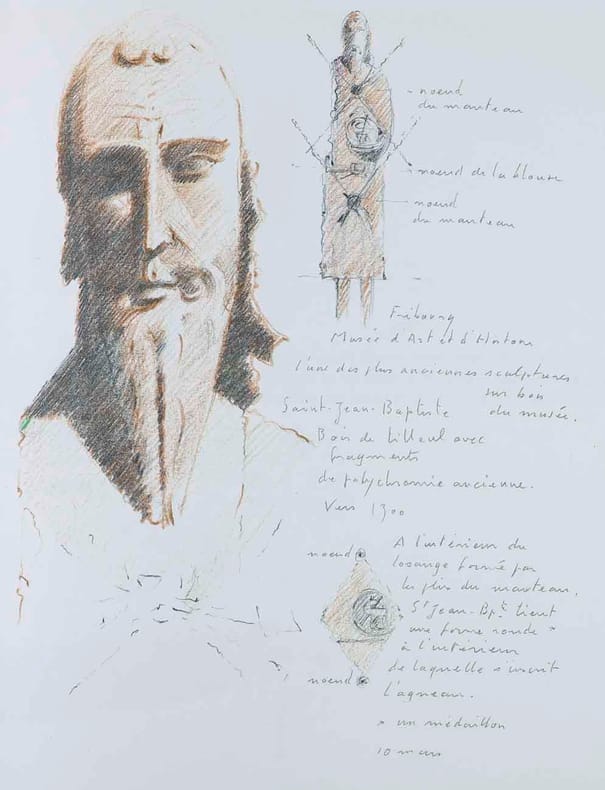 noeud
du manteau
noeud de la blouse
noeud
du manteau
Fribourg
Musée d'Art et d'Histoire
l'une des plus anciennes sculptures
sur bois
du musée.
Saint-Jean-Baptiste
Bois de tilleul avec
fragments
de polychromie ancienne.
Vers 1300
noeud
A l'intérieur du
losange formé par
les plis du manteau,
St Jean-Bpte tient
une forme ronde *
à l'intérieur
de laquelle s'inscrit
l'agneau.
noeud
* un médaillon
10 mars